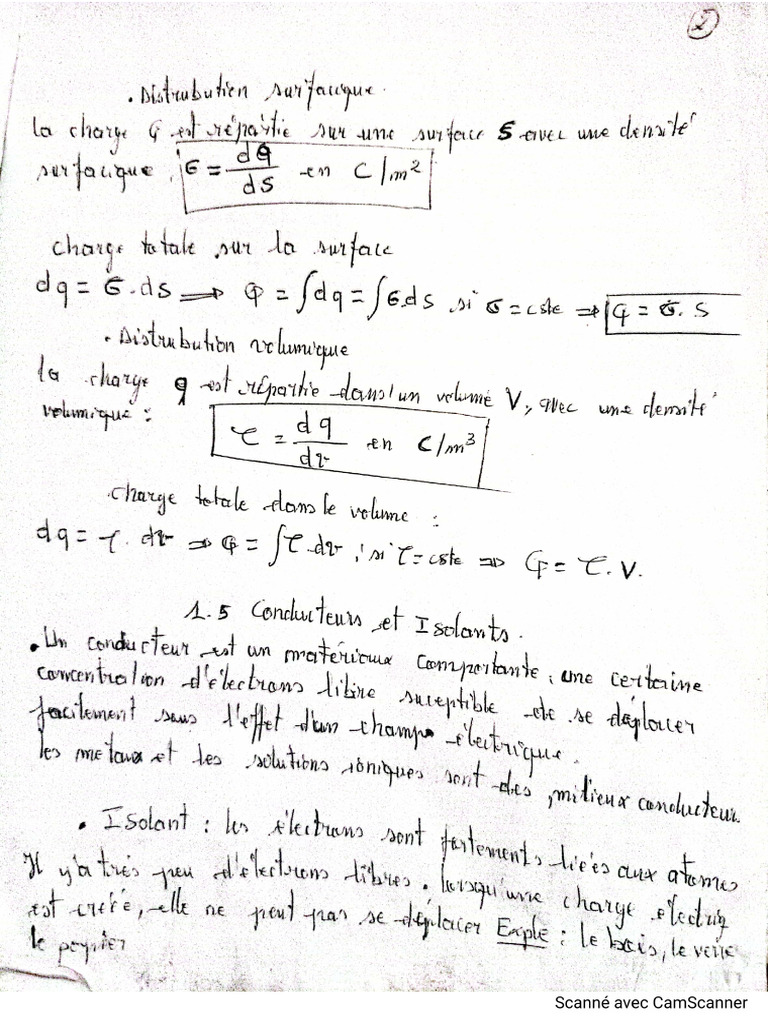 2
. Distrubution surfacique.
la charge Q est répartie sur une surface S avec une densité
surfacique, σ = dQ/dS en C/m²
charge totale sur la surface
dq = σ.ds ⟹ Q = ∫dq = ∫σ.ds si σ = cste ⟹ Q = σ. S
. Distrubution volumique
la charge q est répartie dans un volume V, avec une densité
volumique :
τ = dq/dv en C/m³
charge totale dans le volume :
dq = τ. dv ⟹ Q = ∫τ.dv, si τ = cste ⟹ Q = τ.V.
1.5 Conducteurs et Isolants.
. Un conducteur est un matériaux comportante, une certaine
concentration d'électrons libire suceptible de se déplacer
facilement sous l'effet d'un champ électrique.
les metaux et les solutions ioniques sont des milieux conducteur.
. Isolant : les électrons sont fortements liées aux atomes
Il y'a trés peu d'électrons libres. lorsqu'une charge électriq
est créée, elle ne peut pas se déplacer Exple : le bois, le verre
le papier
Scanné avec CamScanner